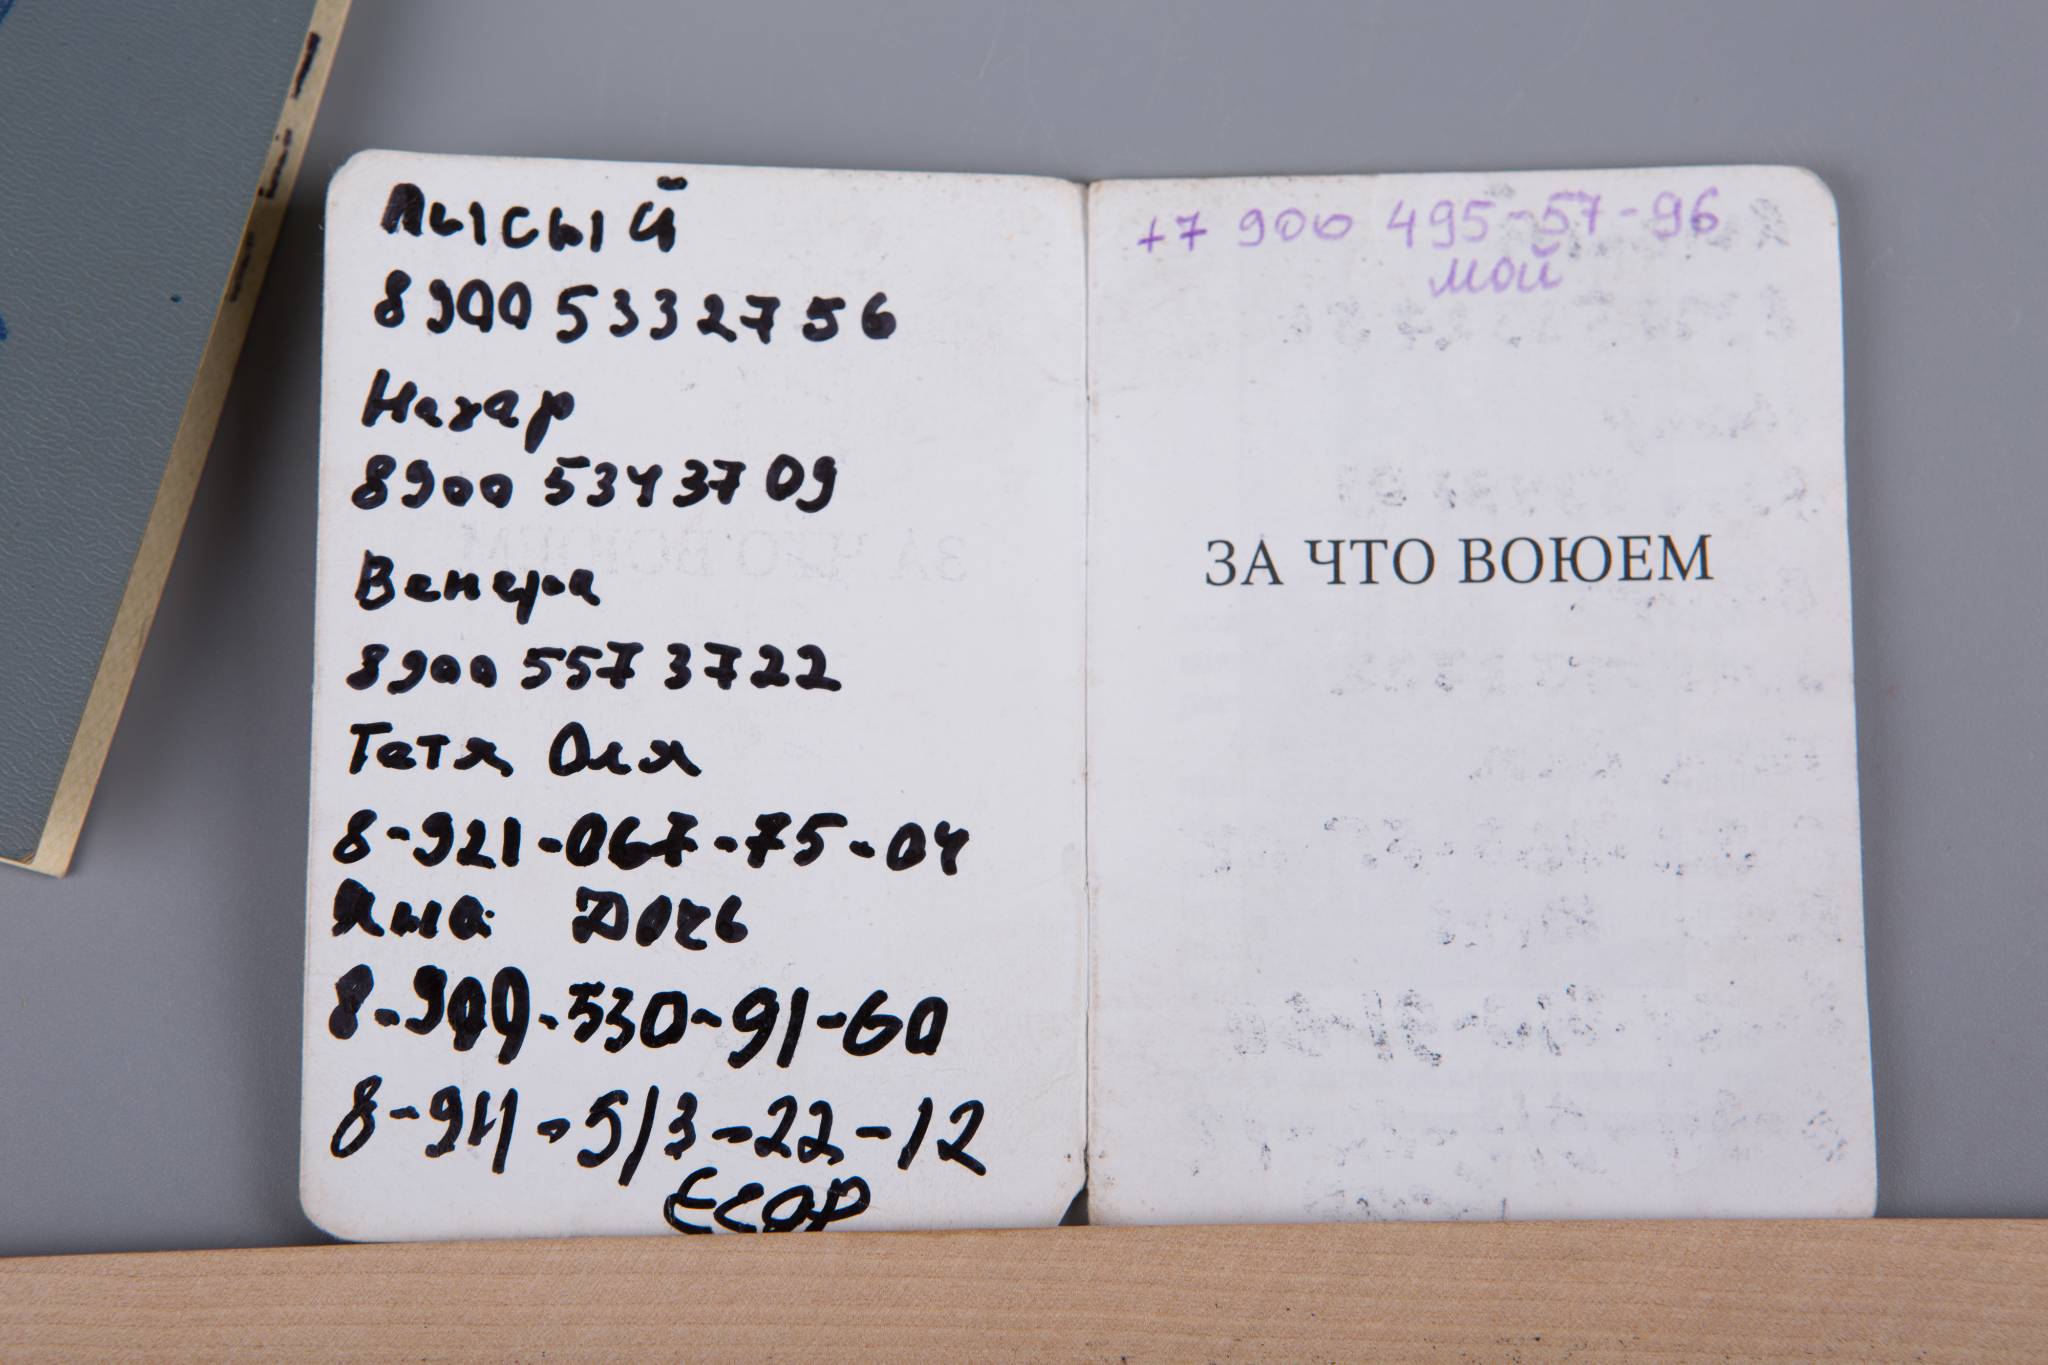 Лысый
8900 533 27 56
Нахар
8900 534 37 09
Венера
8900 557 3722
Тетя Оля
8-921-067-75-04
Яна Дочь
8-900-530-91-60
8-911-513-22-12
Егор
+7 900 495-57-96
мой
ЗА ЧТО ВОЮЕМ